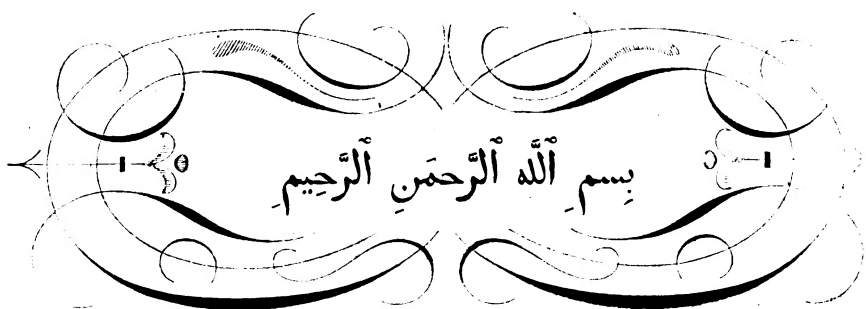 بِسمِ ٱللَّه ٱلرَّحمَنِ ٱلرَّحِيمِ